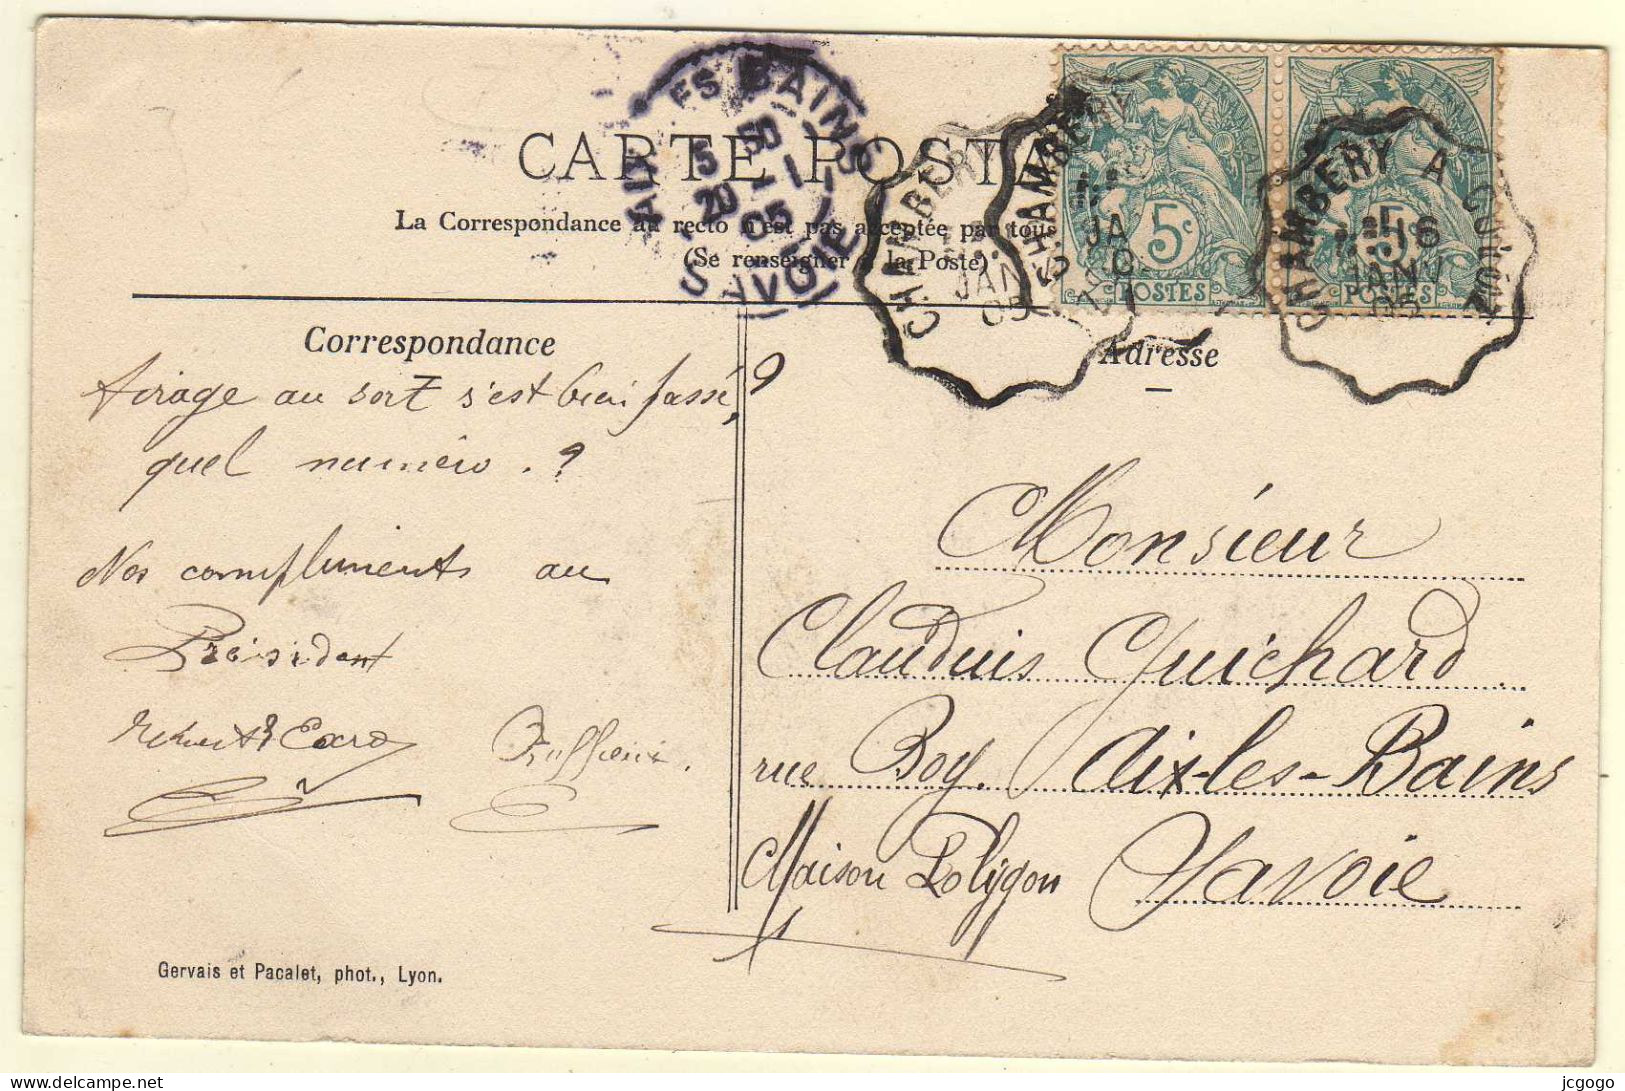 CARTE POSTA
La Correspondance au recto n'est pas acceptée par tous
(Se renseigner à la Poste)
AIX LES BAINS
5 50
20 -1
05
SAVOIE
CHAMBERY
JANV
05
CHAMBERY
JA
CHAMBERY A
16
JANV
05
5c
POSTES
5c
POSTES
Correspondance
tirage au sort s'est bien passé, ?
quel numéro . ?
Nos compliments au
Président
Adresse
Monsieur
Claudius Guichard
rue Boy. Aix-les-Bains
Maison Polygon Savoie
Gervais et Pacalet, phot., Lyon.
delcampe.net
jcgogo